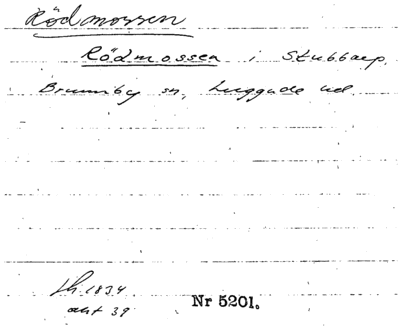 Rödmossen
Rödmossen i Stubbarp.
Brunnby sn, Luggude hd.
Lh. 1834
akt 39 Nr 5201.